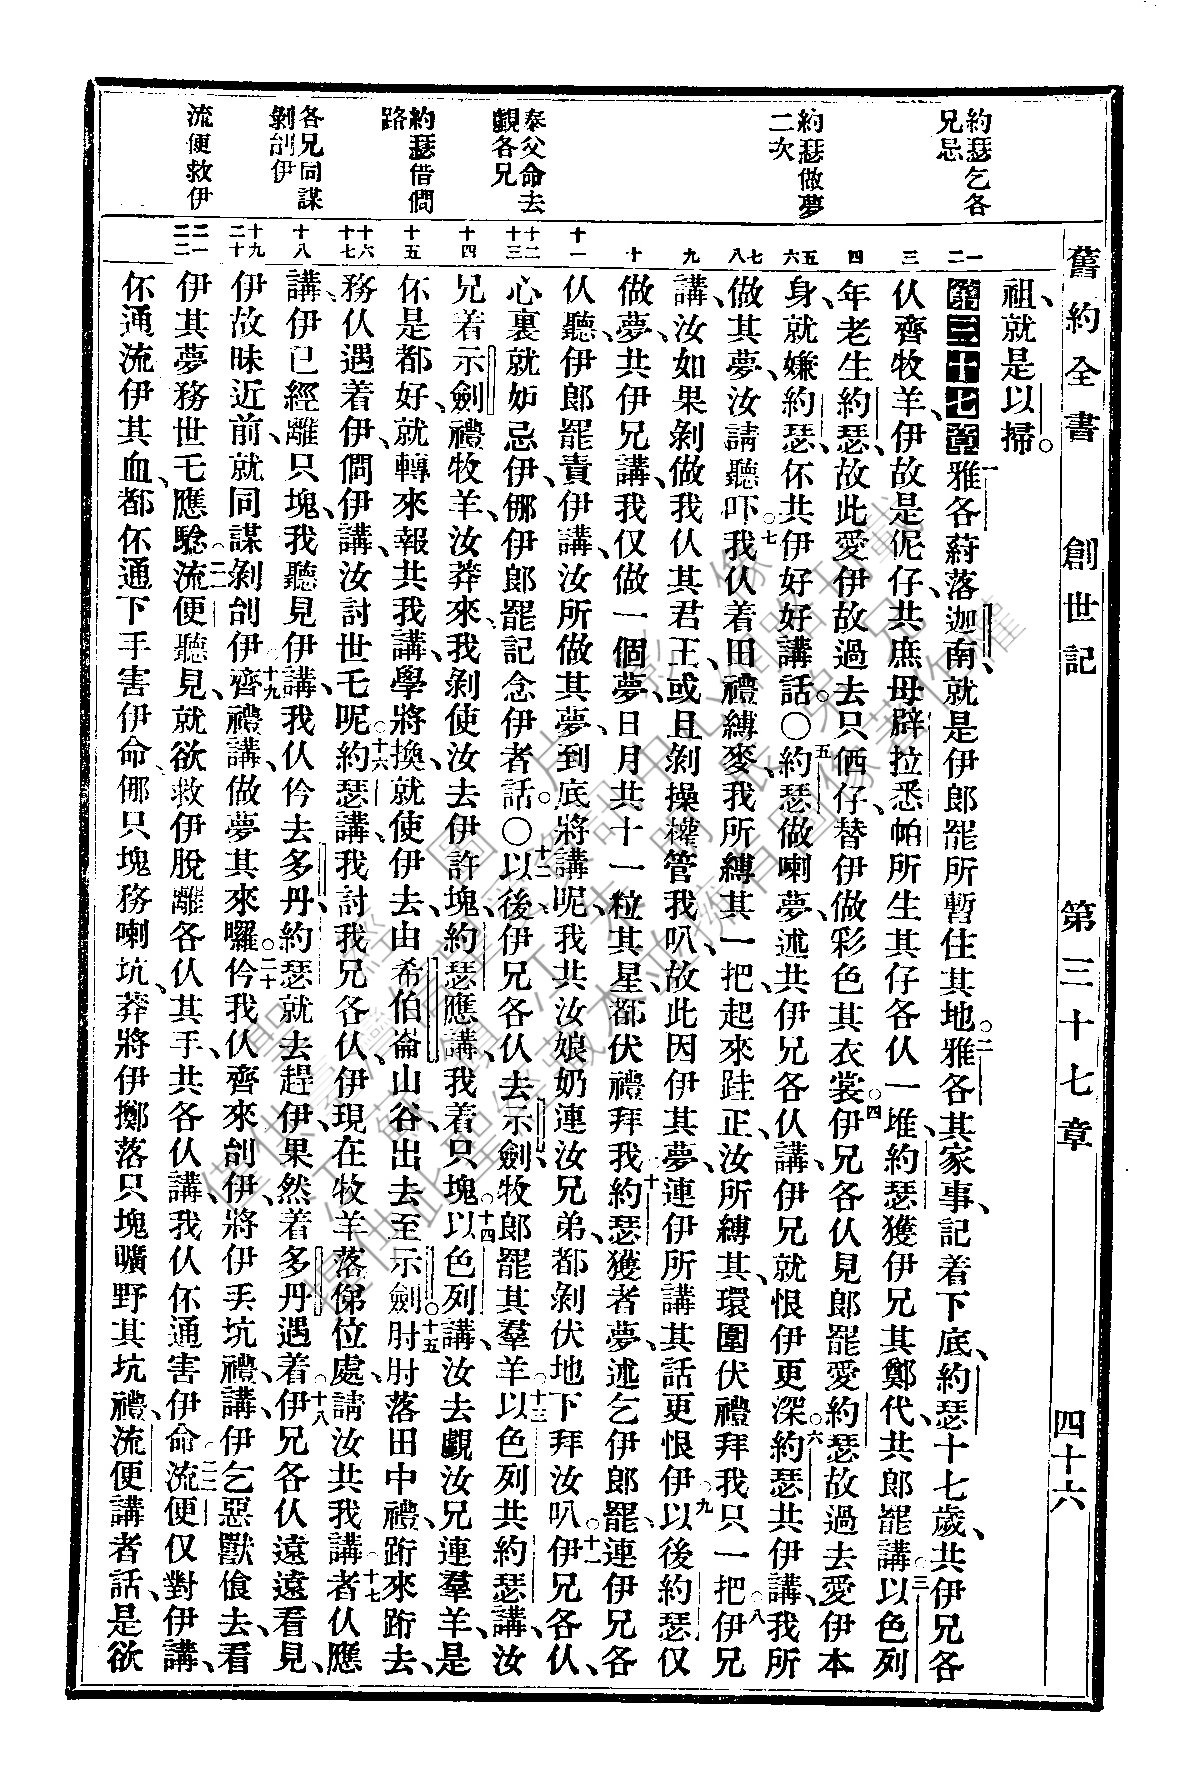 舊約全書　創世記　第三十七章　四十六
約瑟乞各
兄忌
約瑟做夢
二次
奉父命去
覷各兄
約瑟借問
路
各兄同謀
剝刣伊
流便救伊
祖、就是以掃。
第三十七章 雅各蒔落迦南、就是伊郎罷所暫住其地。二雅各其家事、記着下底、約瑟十七歲、共伊兄各
仈齊牧羊、伊故是伲仔、共庶母辟拉悉帕所生其仔各仈一堆、約瑟獲伊兄其鄭代、共郎罷講。三以色列
年老生約瑟、故此愛伊故過去只俩仔、替伊做彩色其衣裳。四伊兄各仈見郎罷愛約瑟故過去愛伊本
身、就嫌約瑟、伓共伊好好講話。〇五約瑟做喇夢、述共伊兄各仈講、伊兄就恨伊更深。六約瑟共伊講、我所
做其夢、汝請聽吓。七我仈着田禮縛麥、我所縛其一把起來跬正、汝所縛其、環圍伏禮拜我只一把。八伊兄
講、汝如果剝做我仈其君王、或且剝操權管我叭、故此因伊其夢、連伊所講其話更恨伊。九以後約瑟仅
做夢、共伊兄講、我仅做一個夢、日月共十一粒其星、都伏禮拜我。十約瑟獲者夢、述乞伊郎罷、連伊兄各
仈聽、伊郎罷責伊講、汝所做其夢、到底將講呢、我共汝娘奶連汝兄弟、都剝伏地下拜汝叭。十一伊兄各仈、
心裏就妒忌伊、㑚伊郎罷記念伊者話。〇十二以後伊兄各仈、去示劍牧郎罷其羣羊。十三以色列共約瑟講、汝
兄着示劍禮牧羊、汝莽來、我剝使汝去伊許塊、約瑟應講、我着只塊。十四以色列講、汝去覷汝兄連羣羊、是
伓是都好、就轉來報共我講、學將換就使伊去、由希伯崙山谷、出去至示劍。十五肘肘落田中禮、跨來跨去、
務仈遇着伊、僩伊講、汝討世乇呢。十六約瑟講、我討我兄各仈、伊現在牧羊落俤位處、請汝共我講。十七者仈應
講、伊已經離只塊、我聽見伊講、我仈仱去多丹、約瑟就去趕伊、果然着多丹遇着。十八伊兄各仈遠遠看見、
伊故昧近前、就同謀剝刣伊。十九齊禮講、做夢其來囉。二十仱我仈齊來刣伊、將伊丟坑禮、講、伊乞惡獸飡去、看
伊其夢務世乇應騐。二一流便聽見、就欲救伊脫離各仈其手、共各仈講、我仈伓通害伊命。二二流便仅對伊講、
伓通流伊其血、都伓通下手害伊命、㑚只塊務喇坑、莽將伊擲落只塊曠野其坑禮、流便講者話、是欲
一
二
三
四
五
六
七
八
九
十
十一
十二
十三
十四
十五
十六
十七
十八
十九
二十
二一
二二